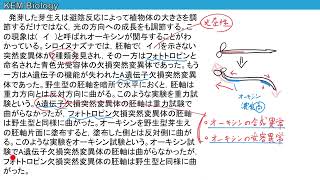 KEM Biology
発芽した芽生えは避陰反応によって植物体の大きさを調
節するだけではなく、光の方向への成長をも調節する。こ
の現象は( イ )と呼ばれオーキシンが関与することがわ
かっている。シロイヌナズナでは、胚軸で( イ )を示さない突
然変異体が2種類発見され、その一方はフォトトロピンと
命名された青色光受容体の欠損突然変異体であった。もう
一方はA遺伝子の機能が失われたA遺伝子欠損突然変異
体であった。野生型の芽生えを暗所で水平におくと、胚軸は
重力方向とは反対方向に曲がる。このような実験を重力試
験という。A遺伝子欠損突然変異体の胚軸は重力試験で
曲がらなかったが、フォトトロピン欠損突然変異体の胚軸は
野生型と同様に曲がった。オーキシンを野生型芽生え
の胚軸片面に塗布すると、塗布した側とは反対側に曲が
る。このような実験をオーキシン試験という。オーキシン試
験でA遺伝子欠損突然変異体の胚軸は曲がらなかったが、
フォトトロピン欠損突然変異体の胚軸は野生型と同様に曲
がった。
光
オーキシン
オーキシンの合成異常
オーキシンの受容異常